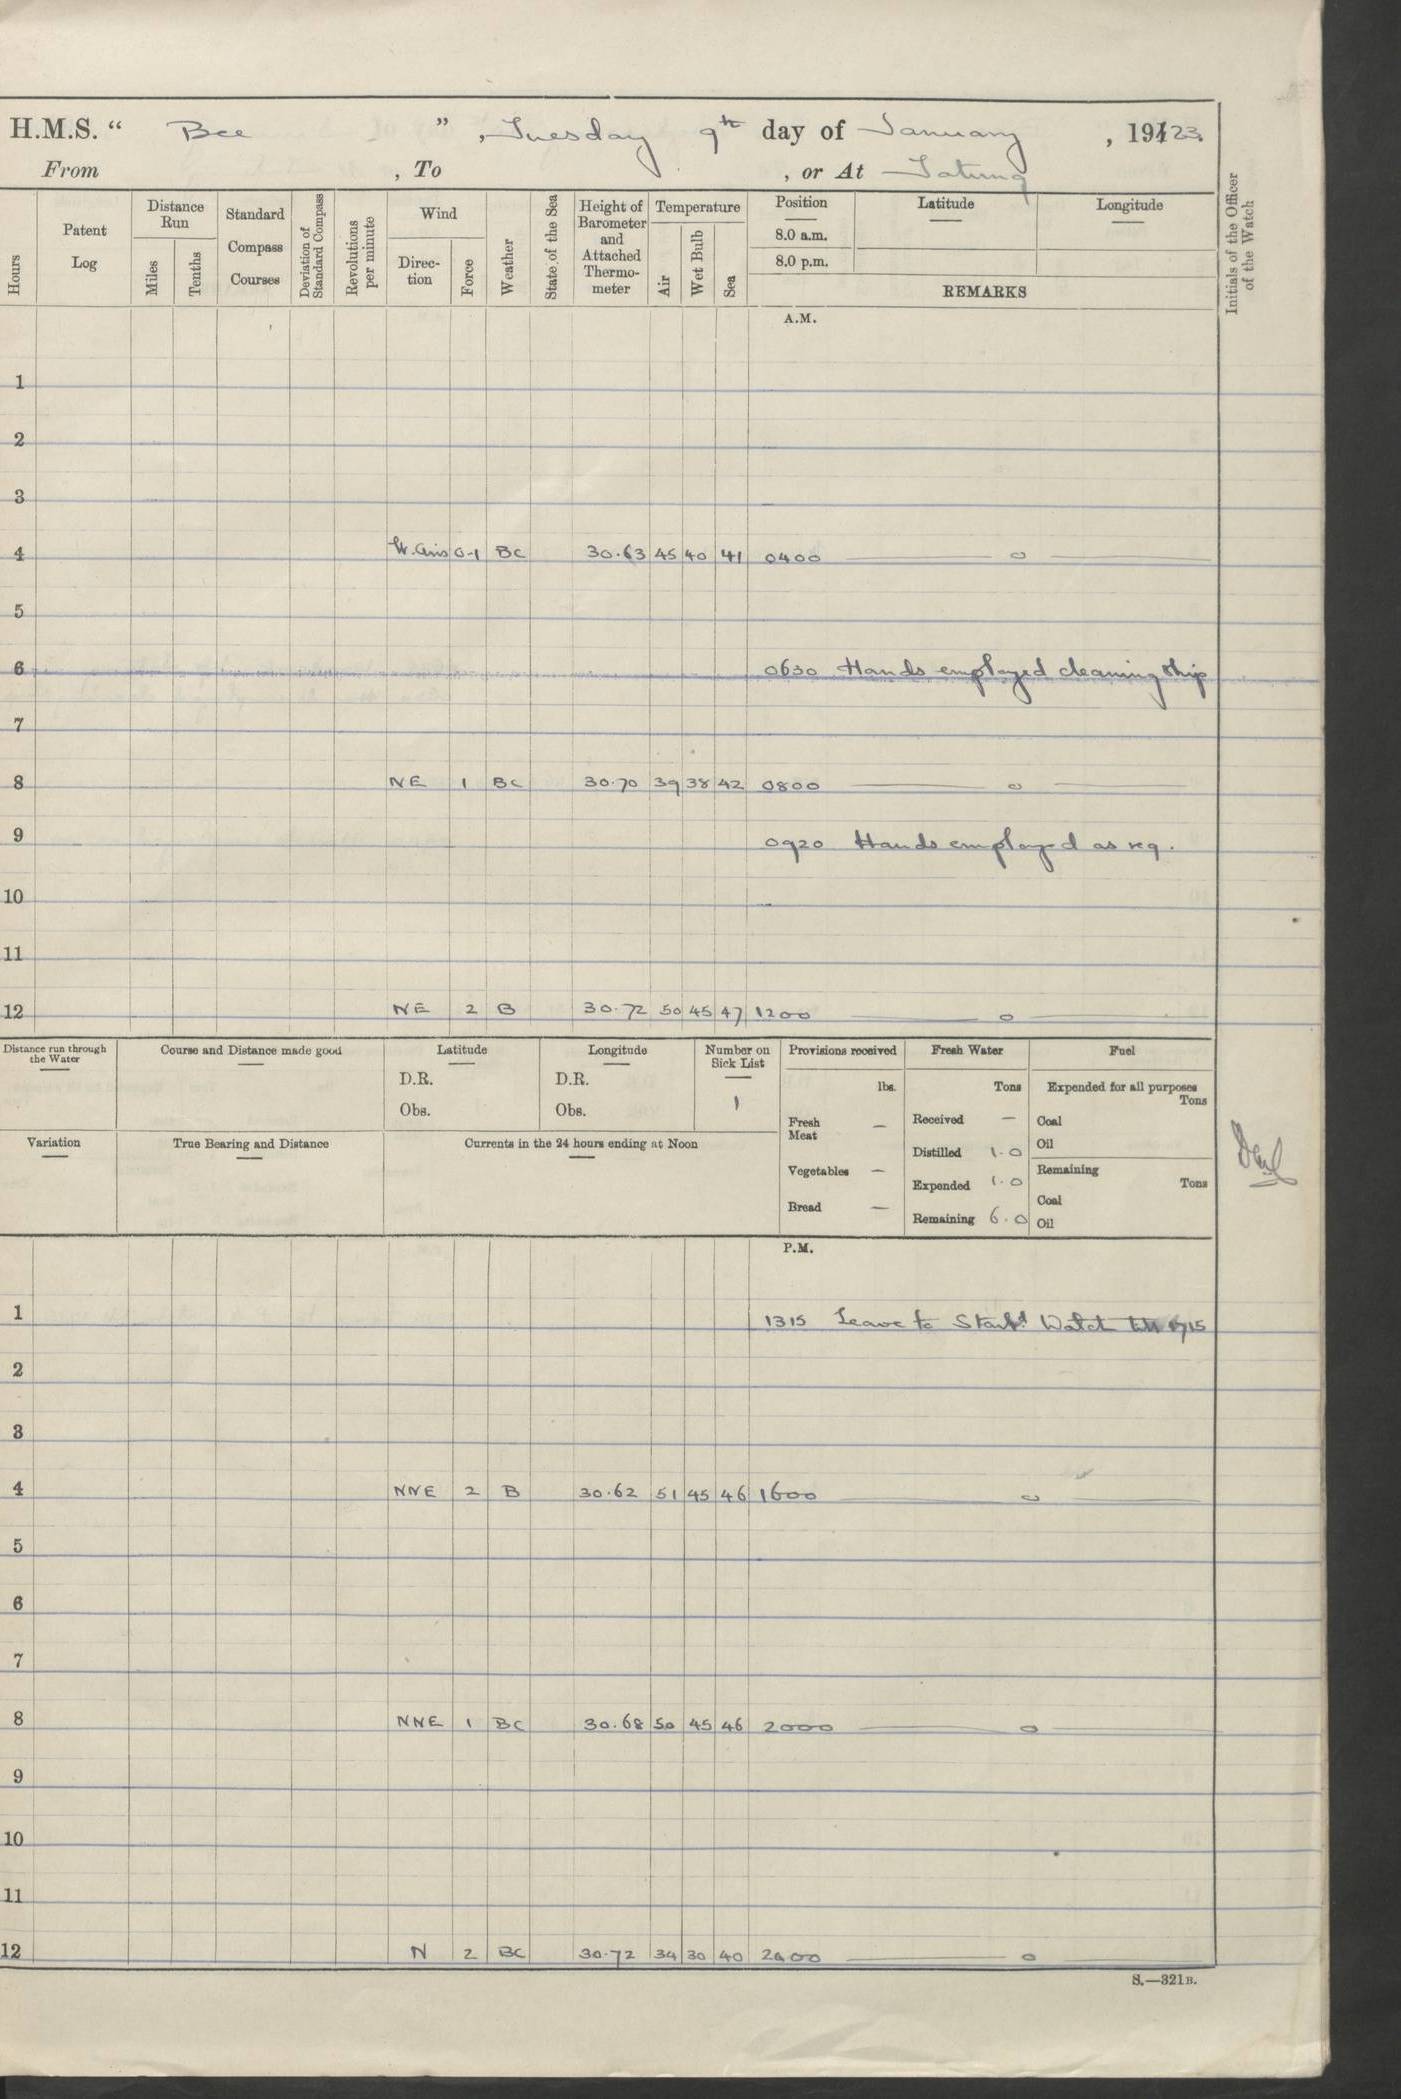 H.M.S. “ Bee ” , Tuesday 9th day of January , 1923.
From , To , or At Tatung
Hours
Patent Log
Distance Run
Miles
Tenths
Standard Compass Courses
Deviation of Standard Compass
Revolutions per minute
Wind
Direc-tion
Force
Weather
State of the Sea
Height of Barometer and Attached Thermo-meter
Temperature
Air
Wet Bulb
Sea
Position
8.0 a.m.
8.0 p.m.
Latitude
Longitude
REMARKS
Initials of the Officer of the Watch
A.M.
1
2
3
4 0-1 BC 30.63 45 40 41 0400 — o —
5
6 0630 Hands employed cleaning ship
7
8 NE 1 BC 30.70 39 38 42 0800 — o —
9 0920 Hands employed as req.
10
11
12 NE 2 B 30.72 50 45 47 1200 — o —
Distance run through the Water
Course and Distance made good
Latitude
D.R.
Obs.
Longitude
D.R.
Obs.
Number on Sick List
1
Provisions received
lbs.
Fresh Meat —
Vegetables —
Bread —
Fresh Water
Tons
Received —
Distilled 1.0
Expended 1.0
Remaining 6.0
Fuel
Expended for all purposes
Tons
Coal
Oil
Remaining
Tons
Coal
Oil
Variation
True Bearing and Distance
Currents in the 24 hours ending at Noon
P.M.
1 1315 Leave to Starbd Watch till 1715
2
3
4 NNE 2 B 30.62 51 45 46 1600 — o —
5
6
7
8 NNE 1 BC 30.68 50 45 46 2000 — o —
9
10
11
12 N 2 BC 30.72 34 30 40 2400 — o —
S.—321B.